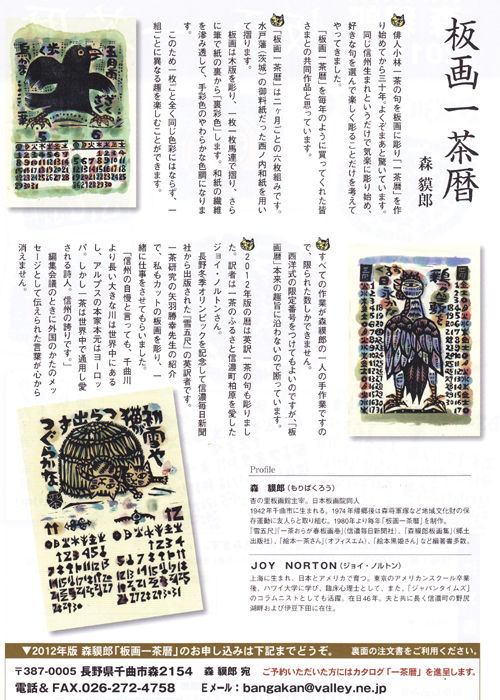 板画一茶暦
森 貘郎
俳人小林一茶の句を板画に彫り「一茶暦」を作
り始めてから三十年。よくぞまあと驚いています。
同じ信州生まれというだけで気楽に彫り始め、
好きな句を選んで楽しく彫ることだけを考えて
やってきました。
「板画一茶暦」を毎年のように買ってくれた皆
さまとの共同作品と思っています。
「板画一茶暦」は二ヶ月ごとの六枚組みです。
水戸藩(茨城)の御料紙だった西ノ内和紙を用い
て摺ります。
板画は木版を彫り、一枚一枚馬連で摺り、さら
に筆で紙の裏から「裏彩色」します。和紙の繊維
を滲み透して、手彩色のやわらかな色調になりま
す。
このため一枚ごと全く同じ色彩にはならず、一
組ごとに異なる趣を楽しむことができます。
すべての作業が森貘郎の一人の手作業ですの
で、限られた数しかできません。
西洋式の限定番号をつけてもよいのですが、「板
画暦」本来の趣旨に沿わないので断っています。
2012年版の暦は英訳一茶の句も彫りまし
た。訳者は一茶のふるさと信濃町柏原を愛した
ジョイ・ノルトンさん。
長野冬季オリンピックを記念して信濃毎日新聞
社から出版された「雪五尺」の英訳者です。
一茶研究の矢羽勝幸先生の紹介
で、私もカットの板画を彫り、一
緒に仕事をさせてもらいました。
「信州の自慢と言っても、千曲川
より長い大きな川は世界中にある
し、アルプスの本家本元はヨーロッ
パ。しかし一茶は世界中で通用し愛
される詩人。信州の誇りです。」
編集会議のときに外国のかたのメッ
セージとして伝えられた言葉が心から
消えません。
初雪や
猫がつら出す
つぐらかな
Profile
森 貘郎(もりばくろう)
杏の里板画館主宰。日本板画院同人
1942年千曲市に生まれる。1974年帰郷後は森将軍塚など地域文化財の保
存運動に友人らと取り組む。1980年より毎年「板画一茶暦」を制作。
『雪五尺』『一茶おらが春板画巻』(信濃毎日新聞社)、『森貘郎板画集』(郷土
出版社)、『絵本一茶さん』(オフィスエム)、『絵本黒姫さん』など編著書多数。
JOY NORTON(ジョイ・ノルトン)
上海に生まれ、日本とアメリカで育つ。東京のアメリカンスクール卒業
後、ハワイ大学に学び、臨床心理士として、また、「ジャパンタイムズ」
のコラムニストとしても活躍。在日46年。夫と共に長く信濃町の野尻
湖畔および伊豆下田に在住。
▼2012年版 森貘郎「板画一茶暦」のお申し込みは下記までどうぞ。 裏面の注文書をご利用ください。
〒387-0005 長野県千曲市森2154 森 貘郎 宛 ご予約いただいた方にはカタログ「一茶暦」を進呈します。
電話& FAX.026-272-4758 Eメール:bangakan@valley.ne.jp